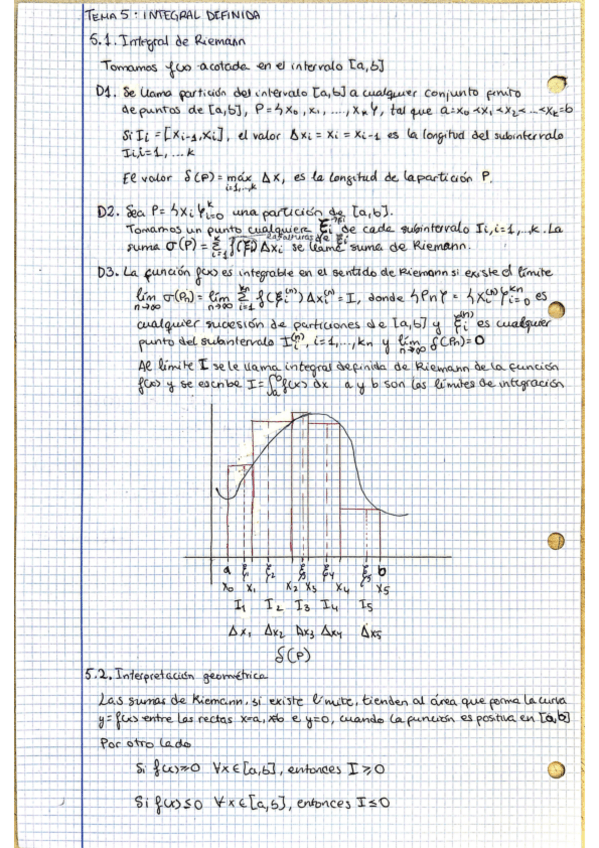 TEMA 5: INTEGRAL DEFINIDA
5.1. Integral de Riemann
Tomamos f(x) acotada en el intervalo [a,b]
D1. Se llama partición del intervalo [a,b] a cualquier conjunto finito
de puntos de [a,b], P={x₀, x₁, ..., xₖ}, tal que a=x₀<x₁<x₂<...<xₖ=b
Si Iᵢ=[xᵢ₋₁,xᵢ], el valor Δxᵢ = xᵢ = xᵢ₋₁ es la longitud del subintervalo
Iᵢ, i=1, ...k
El valor δ(P)= máx Δxᵢ es la longitud de la partición P.
i=1,..,k
D2. Sea P={xᵢ}ᵏᵢ₌₀ una partición de [a,b].
Tomamos un punto cualquiera ξᵢ de cada subintervalo Iᵢ, i=1, ..k. La
suma σ(P)=Σᵏᵢ₌₁ f(ξᵢ)Δxᵢ se llama suma de Riemann.
D3. La función f(x) es integrable en el sentido de Riemann si existe el límite
lím n→∞ σ(Pₙ) = lím n→∞ Σᵏⁿᵢ₌₁ f(ξᵢ⁽ⁿ⁾)Δxᵢ⁽ⁿ⁾=I, donde {Pₙ} = {xᵢ⁽ⁿ⁾}ᵏⁿᵢ₌₀ es
cualquier sucesión de particiones de [a,b] y ξᵢ⁽ⁿ⁾ es cualquier
punto del subintervalo Iᵢ⁽ⁿ⁾, i=1,...,kₙ y lím n→∞ δ(Pₙ)=0
Al límite I se le llama integral definida de Riemann de la función
f(x) y se escribe I=∫ₐᵇ f(x) dx a y b son los límites de integración
a ξ₁ ξ₂ ξ₃ ξ₄ ξ₅ b
x₀ x₁ x₂ x₃ x₄ x₅
I₁ I₂ I₃ I₄ I₅
Δx₁ Δx₂ Δx₃ Δx₄ Δx₅
δ(P)
5.2. Interpretación geométrica
Las sumas de Riemann, si existe límite, tienden al área que forma la curva
y=f(x) entre las rectas x=a, x=b e y=0, cuando la función es positiva en [a,b]
Por otro lado
Si f(x)≥0 ∀x∈[a,b], entonces I≥0
Si f(x)≤0 ∀x∈[a,b], entonces I≤0